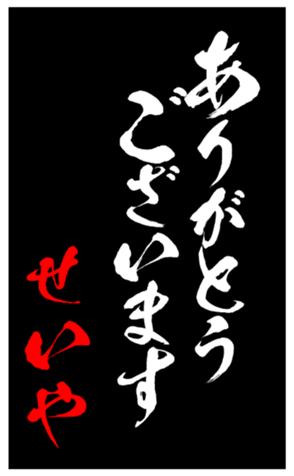 ありがとう
ございます
せいや